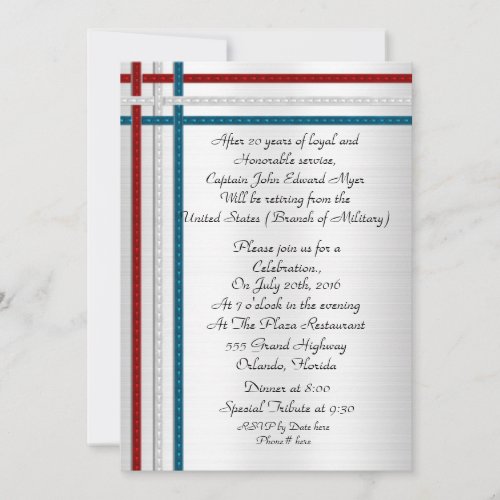 After 20 years of loyal and
Honorable service,
Captain John Edward Myer
Will be retiring from the
United States ( Branch of Military)
Please join us for a
Celebration.,
On July 20th, 2016
At 7 o'clock in the evening
At The Plaza Restaurant
555 Grand Highway
Orlando, Florida
Dinner at 8:00
Special Tribute at 9:30
RSVP by Date here
Phone # here